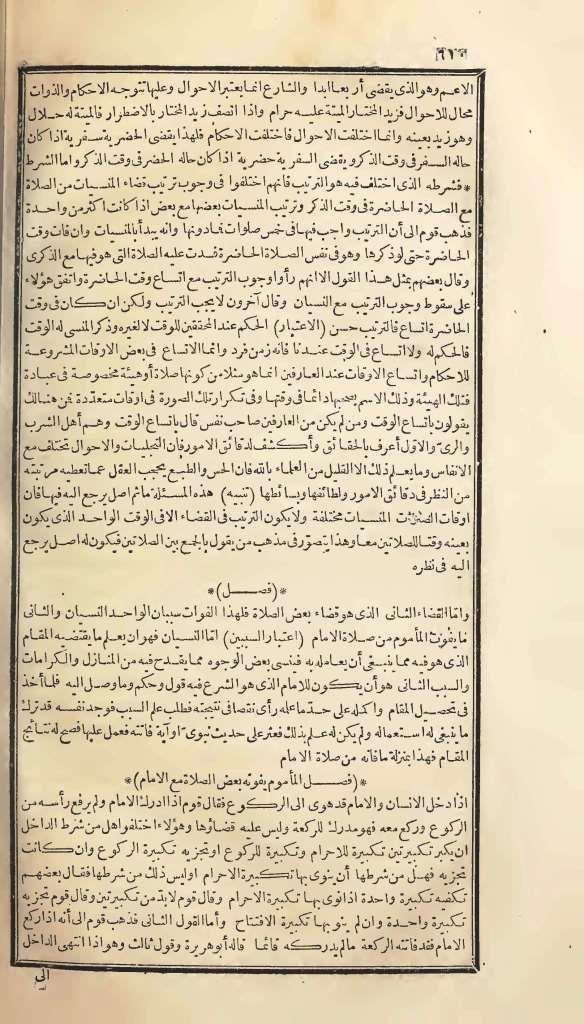 ٦١٠
الاعم وهو الذى يقضى أربعا ابدا والشارع انما يعتبر الاحوال وعليها تتوجه الاحكام والذوات
محال للاحوال فزيد المختار الميتة عليه حرام واذا اتصف زيد المختار بالاضطرار فالميتة له حلال
وهو زيد بعينه وانما اختلفت الاحوال فاختلفت الاحكام فلهذا يقضى الحضرية سفرية اذا كان
حاله السفر فى وقت الذكر ويقضى السفرية حضرية اذا كان حاله الحضر فى وقت الذكر واما الشرط
* فشرطه الذى اختلف فيه هو الترتيب فانهم اختلفوا فى وجوب ترتيب قضاء المنسيات من الصلاة
مع الصلاة الحاضرة فى وقت الذكر وترتيب المنسيات بعضها مع بعض اذا كانت اكثر من واحدة
فذهب قوم الى أن الترتيب واجب فيها فى خمس صلوات فمادونها وانه يبدأ بالمنسيات وان فات وقت
الحاضرة حتى لو ذكرها وهو فى نفس الصلاة الحاضرة فسدت عليه الصلاة التى هو فيها مع الذكرى
وقال بعضهم بمثل هذا القول الا انهم رأوا وجوب الترتيب مع اتساع وقت الحاضرة واتفق هؤلاء
على سقوط وجوب الترتيب مع النسيان وقال آخرون لا يجب الترتيب ولكن ان كان فى وقت
الحاضرة اتساع فالترتيب حسن (الاعتبار) الحكم عند المحققين للوقت لا لغيره وذكر المنسى له الوقت
فالحكم له ولا اتساع فى الوقت عندنا فانه زمن فرد وانما الاتساع فى بعض الاوقات المشروعة
للاحكام واتساع الاوقات عند العارفين انما هو مثلا من كونها صلاة أو هيئة مخصوصة فى عبادة
فتلك الهيئة وذلك الاسم يصحبها دائما فى وقتها وفى تكرار تلك الصورة فى اوقات متعددة فمن هنالك
يقولون باتساع الوقت ومن لم يكن من العارفين صاحب نفس قال باتساع الوقت وهم أهل الشرب
والرى والاول أعرف بالحقائق وأكشف لدقائق الامور فان التجليات والاحوال تختلف مع
الانفاس وما يعلم ذلك الا القليل من العلماء بالله فان الحس والطبع يحجب العقل عما تعطيه مرتبته
من النظر فى دقائق الامور ولطائفها وبسائطها (تنبيه) هذه المسئلة ما ثم اصل يرجع اليه فيها فان
اوقات المنسيات مختلفة ولا يكون الترتيب فى القضاء الا فى الوقت الواحد الذى يكون
بعينه وقتا للصلاتين معا وهذا يتصور فى مذهب من يقول بالجمع بين الصلاتين فيكون له اصل يرجع
اليه فى نظره
*(فصل)*
وامّا القضاء الثانى الذى هو قضاء بعض الصلاة فلهذا الفوات سببان الواحد النسيان والثانى
ما يفوت المأموم من صلاة الامام (اعتبار السببين) امّا النسيان فهو ان يعلم ما يقتضيه المقام
الذى هو فيه مما ينبغى أن يعامله به فينسى بعض الوجوه مما يقدح فيه من المنازل والكرامات
والسبب الثانى هو أن يكون للامام الذى هو الشرع فيه قول وحكم وما وصل اليه فلما أخذ
فى تحصيل المقام واكمله على حد ما علمه رأى نقصا فى نتيجته فطلب علم السبب فوجد نفسه قد ترك
ما ينبغى له استعماله ولم يكن له علم بذلك فعثر على حديث نبوى او آية فاتته فعمل عليها فصح له نتائج
المقام فهذا بمنزلة ما فاته من صلاة الامام
*(فصل المأموم يفوته بعض الصلاة مع الامام)*
اذا دخل الانسان والامام قد هوى الى الركوع فقال قوم اذا ادرك الامام ولم يرفع رأسه من
الركوع وركع معه فهو مدرك للركعة وليس عليه قضاؤها وهؤلاء اختلفوا هل من شرط الداخل
ان يكبر تكبيرتين تكبيرة للاحرام وتكبيرة للركوع او تجزيه تكبيرة الركوع وان كانت
تجزيه فهل من شرطها أن ينوى بها تكبيرة الاحرام اوليس ذلك من شرطها فقال بعضهم
تكفيه تكبيرة واحدة اذا نوى بها تكبيرة الاحرام وقال قوم لابد من تكبيرتين وقال قوم تجزيه
تكبيرة واحدة وان لم ينو بها تكبيرة الافتتاح وأما القول الثانى فذهب قوم الى أنه اذا ركع
الامام فقد فاتته الركعة مالم يدركه قائما قاله أبو هريرة وقول ثالث وهو اذا انتهى الداخل
الى